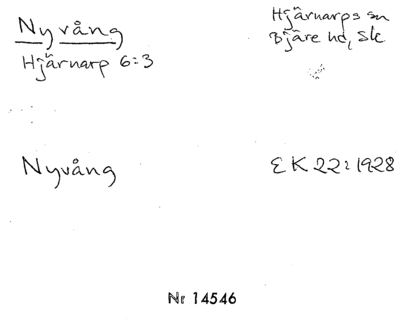 Nyvång
Hjärnarp 6:3
Hjärnarps sn
Bjäre hd, Sk
Nyvång
EK 22: 1928
Nr 14546